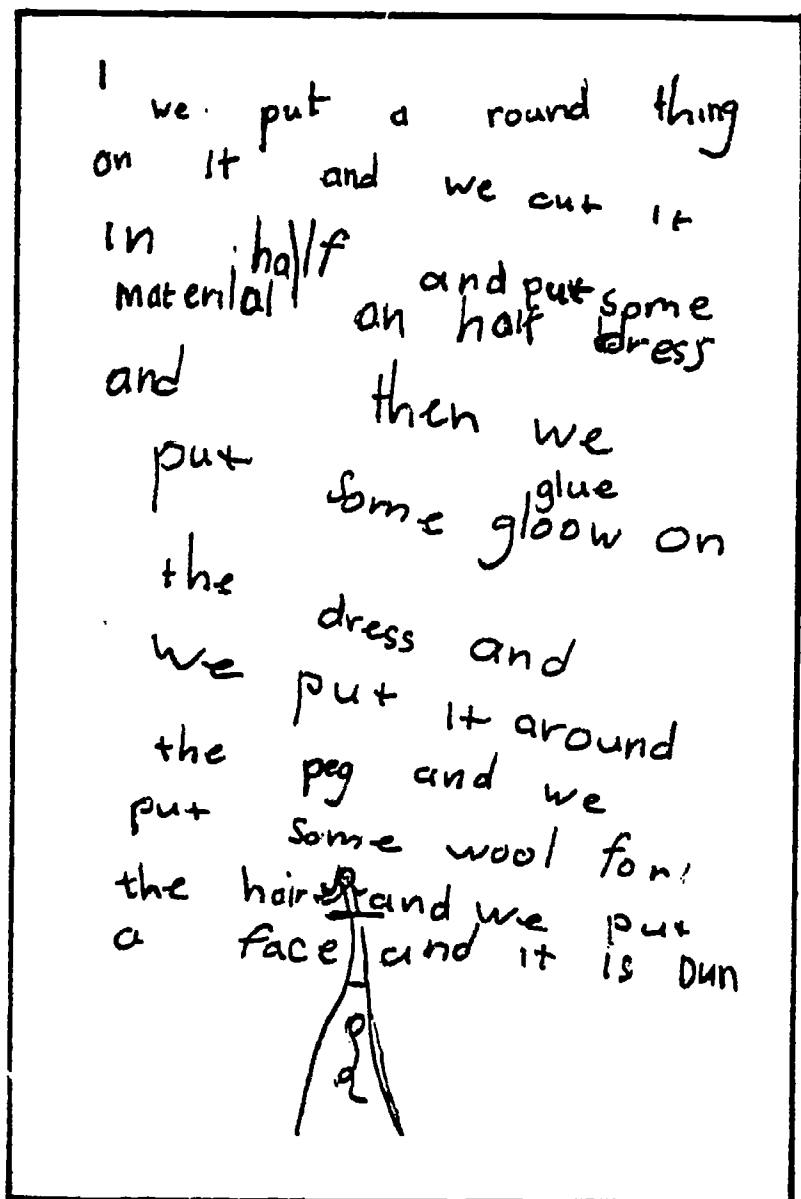 I
we. put a round thing
on it and we cut it
in half and put some
material an half dress
and then we
put some glue gloow on
the dress and
we put it around
the peg and we
put some wool for
the hair and we put
a face and it is Dun